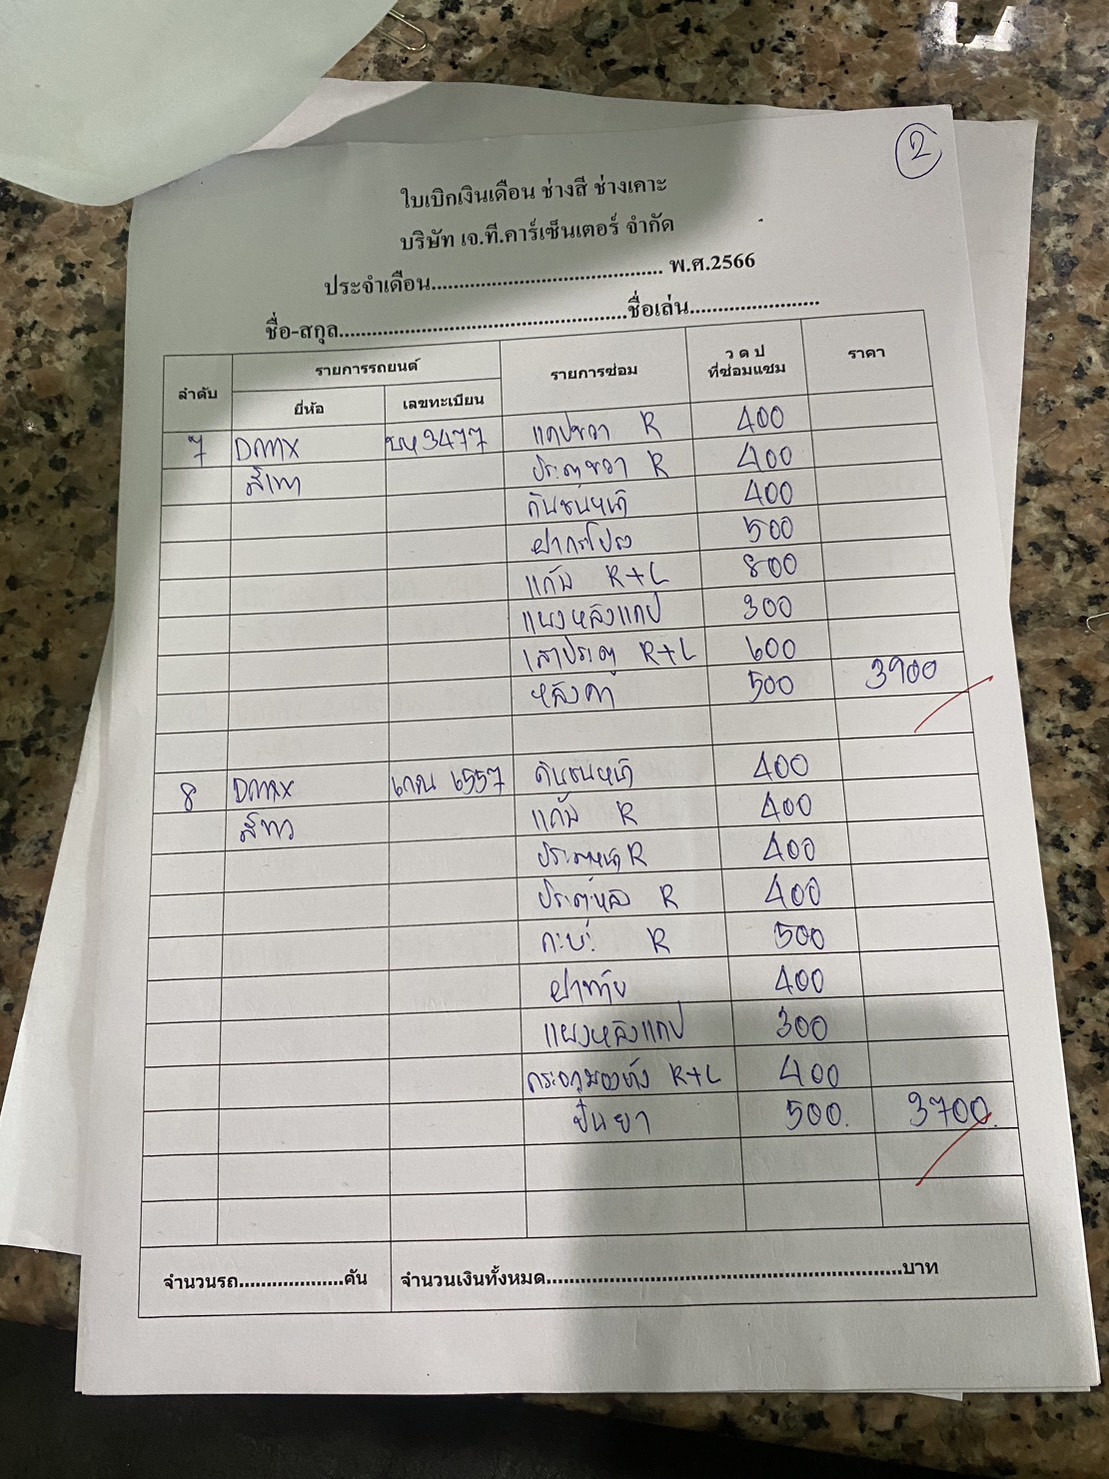 2
ใบเบิกเงินเดือน ช่างสี ช่างเคาะ
บริษัท เจ.ที.คาร์เซ็นเตอร์ จำกัด
ประจำเดือน........................................ พ.ศ.2566
ชื่อ-สกุล..................................................ชื่อเล่น.......................
ลำดับ รายการรถยนต์ รายการซ่อม ว ด ป ที่ซ่อมแซม ราคา
ยี่ห้อ เลขทะเบียน
7 Dmax บห 3477 แคปขวา R 400
สีเทา ประตูขวา R 400
กันชนหน้า 400
ฝากระโปรง 500
แก้ม R+L 800
แผงหลังแคป 300
เสาประตู R+L 600
หลังคา 500 3900
8 Dmax 6557 กันชนหน้า 400
สีขาว แก้ม R 400
ประตูหน้า R 400
ประตูหลัง R 400
กะบะ R 500
ฝาท้าย 400
แผงหลังแคป 300
กระจกมองข้าง R+L 400
500. 3700.
จำนวนรถ...................คัน จำนวนเงินทั้งหมด................................................................บาท